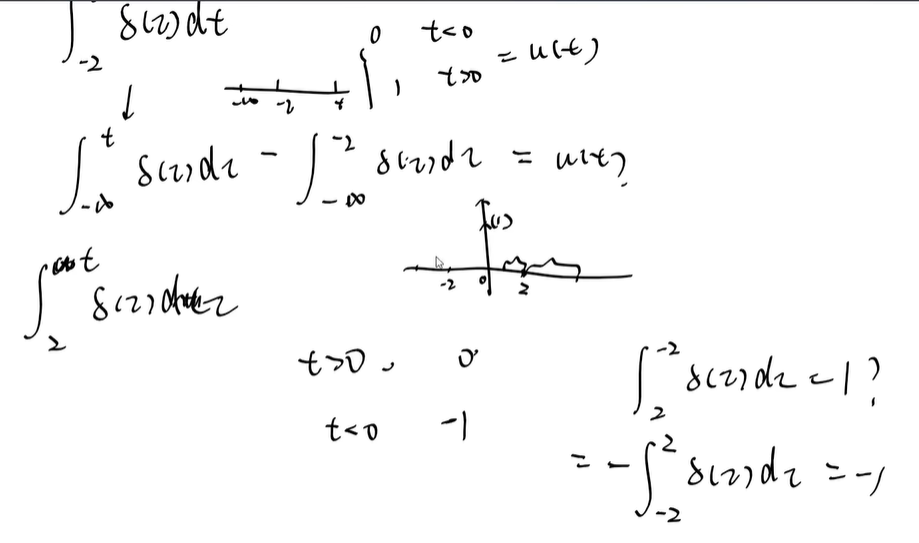 ∫_{-2} δ(τ)dt
{ 0 t<0
1, t>0 = u(t)
-∞ -2 t
↓
∫_{-∞}^{t} δ(τ)dτ - ∫_{-∞}^{-2} δ(τ)dτ = u(t)?
(1)
-2 0 2
∫_{2}^{t} δ(τ)dτ
t>0, 0
t<0 -1
∫_{2}^{-2} δ(τ)dτ = 1?
= -∫_{-2}^{2} δ(τ)dτ = -1